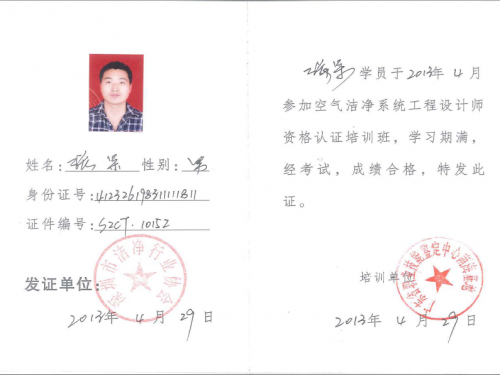 姓名: 性别: 男
身份证号: 412326198311111811
证件编号: SZCT·10152
深圳市洁净行业协会
发证单位:
2013年 4 月 29 日
学员于2013年 4 月
参加空气洁净系统工程设计师
资格认证培训班，学习期满，
经考试，成绩合格，特发此
证。
培训单
2013年 4 月 29 日